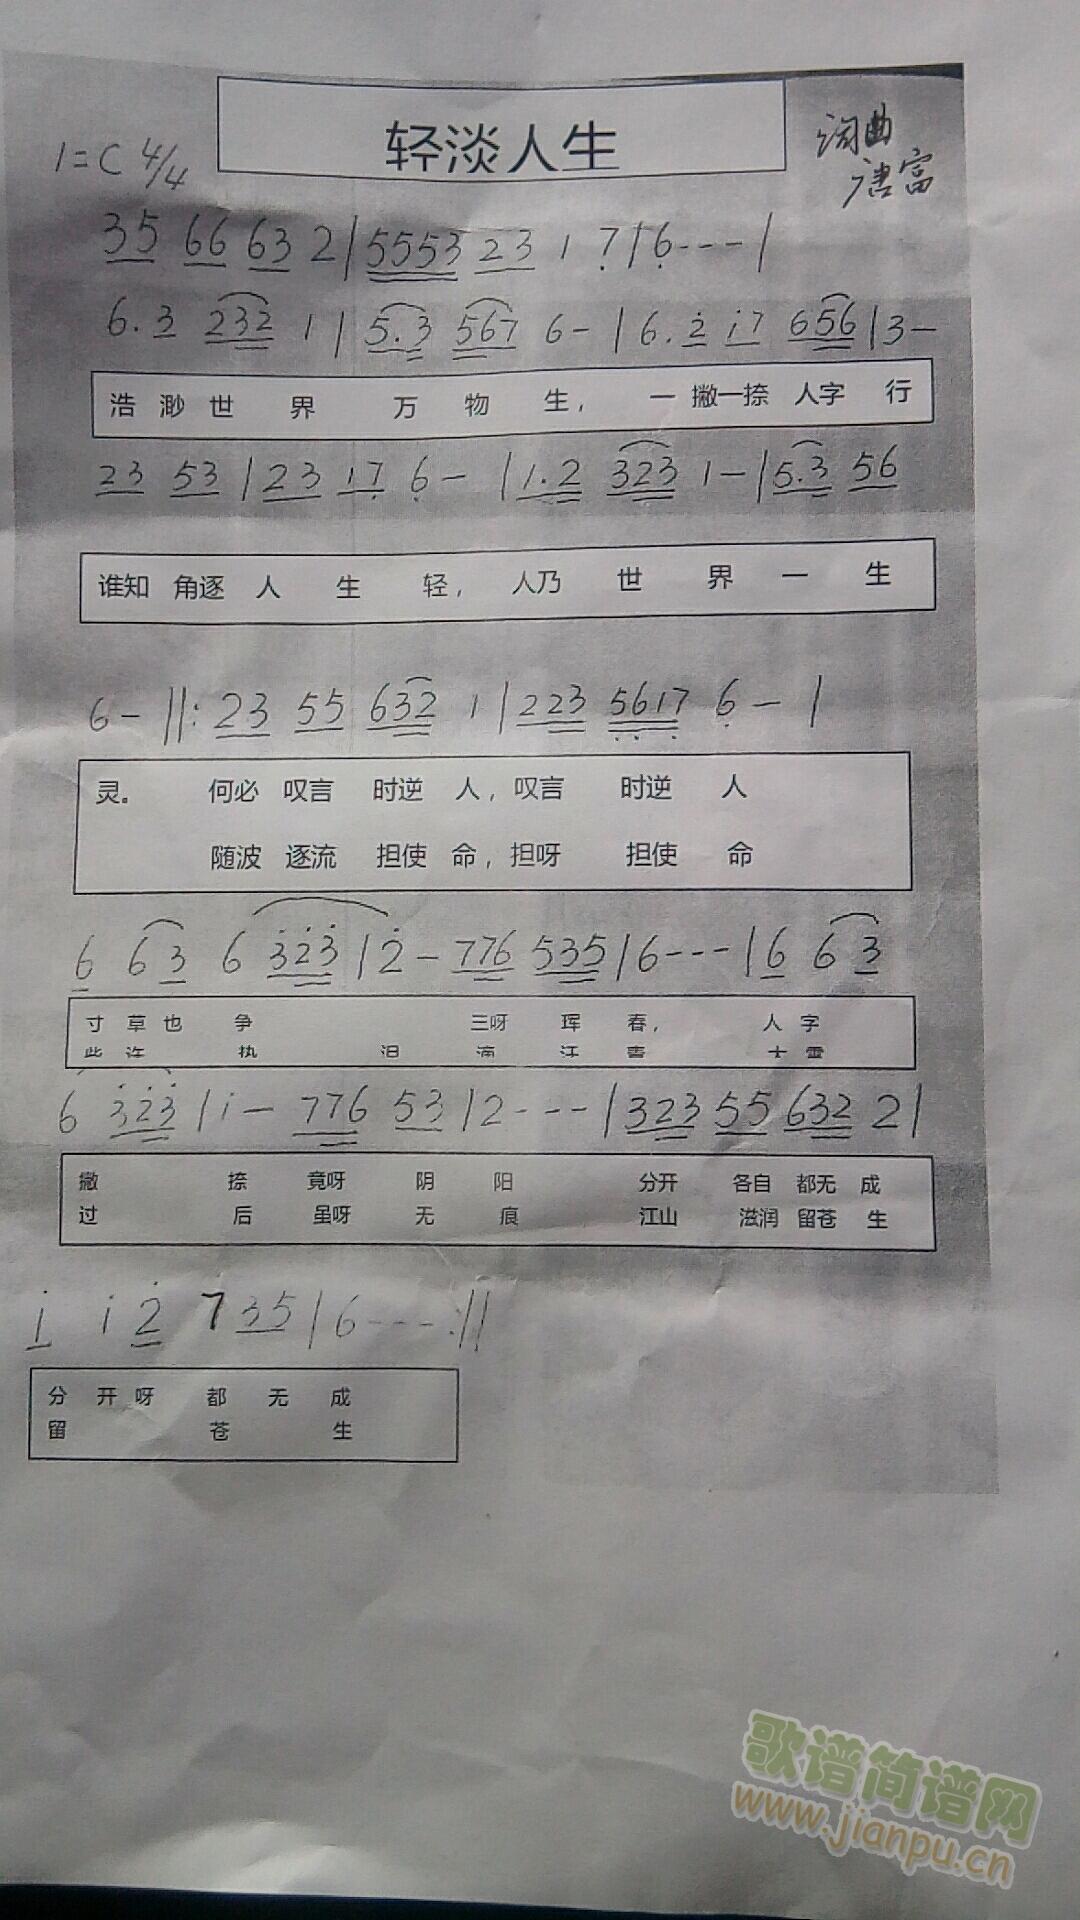 轻淡人生
词曲
唐富
1=C 4/4
35 66 63 2 | 5553 23 1 7̣ | 6̣--- |
6.3 232 1 | 5.3 567 6- | 6.2̇ i7 656 | 3-
浩 渺 世 界 万 物 生， 一 撇一捺 人字 行
23 53 | 23 17̣ 6̣- | 1.2 323 1- | 5.3 56
谁知 角逐 人 生 轻， 人乃 世 界 一 生
6- ‖: 23 55 632 1 | 223 5̣6̣17̣ 6̣- |
灵。 何必 叹言 时逆 人，叹言 时逆 人
随波 逐流 担使 命，担呀 担使 命
6 63 6 3̇2̇3̇ | 2̇- 776 535 | 6--- | 6 63
寸 草也 争 三呀 珲 春， 人 字
些 许 执 泪 滴 汗 青
6 3̇2̇3̇ | i- 776 53 | 2--- | 323 55 632 2 |
撇 捺 竟呀 阴 阳 分开 各自 都无 成
过 后 虽呀 无 痕 江山 滋润 留苍 生
i i 2̇ 7 35 | 6---:‖
分 开呀 都 无 成
留 苍 生
歌谱简谱网
www.jianpu.cn